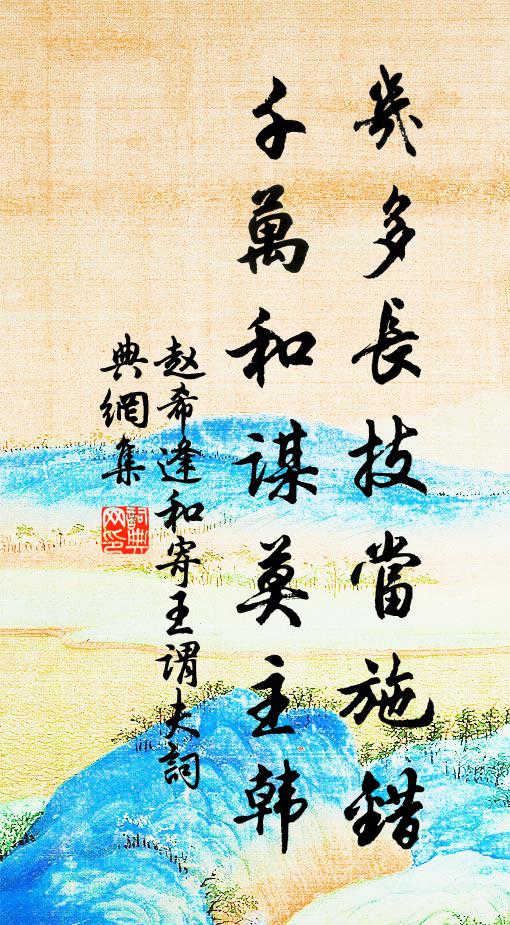 幾多長技當施錯
千萬和謀莫主韩
赵希逢和寄王谓夫詞
典網集